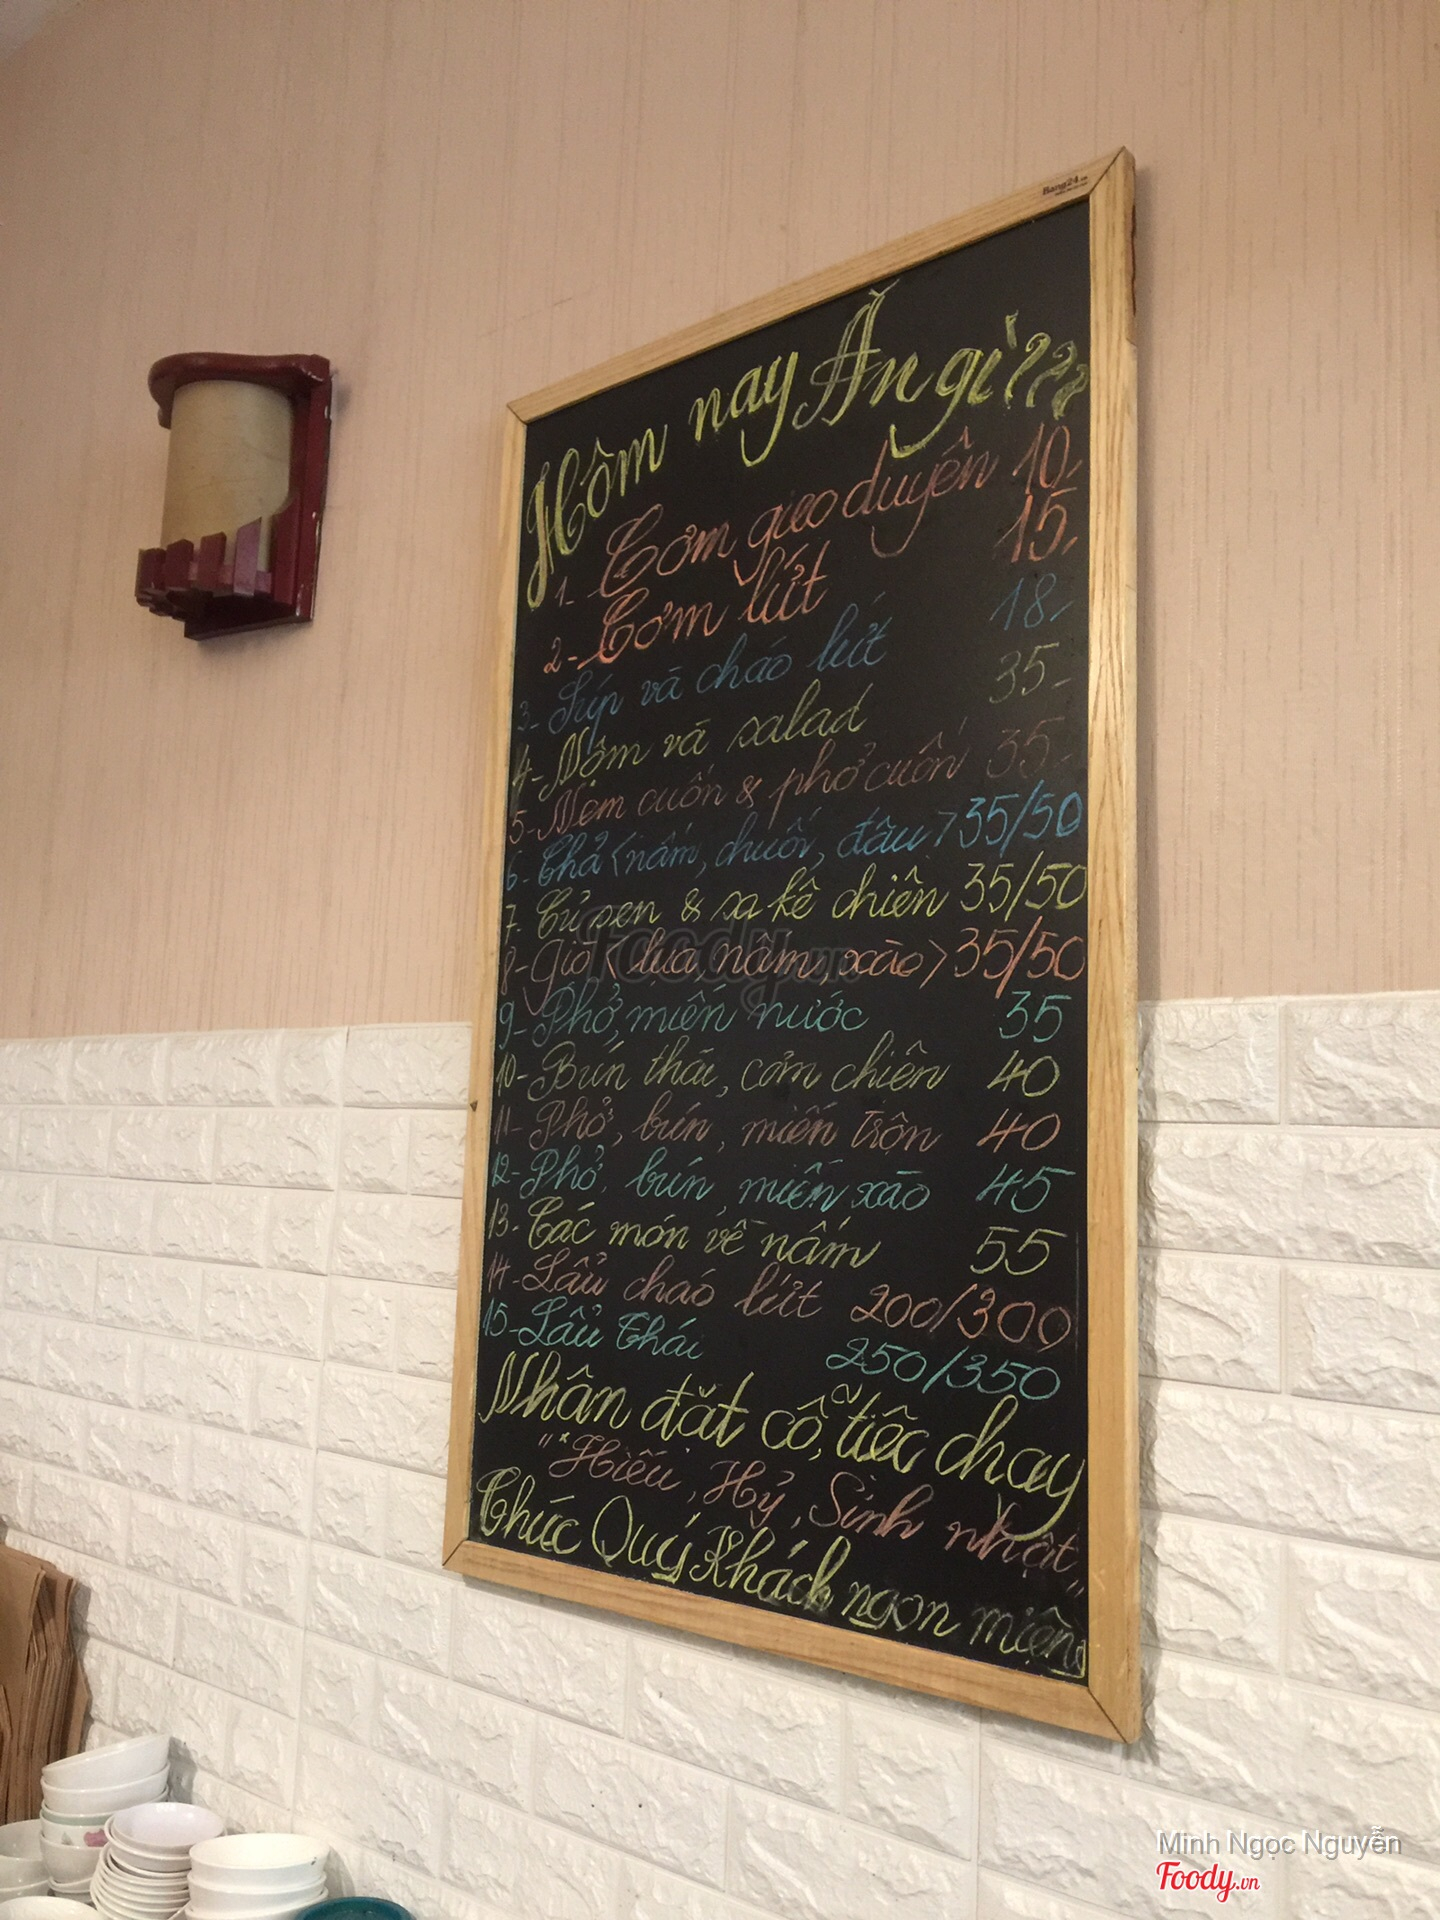 Bang24.vn
Hôm nay Ăn gì???
1- Cơm gieo duyên 10,
2- Cơm lứt 15,
3- Súp và cháo lứt 18,
4- Nộm và salad 35-
5- Nem cuốn & phở cuốn 35-
6- Chả <nấm, chuối, đậu> 35/50
7- Củ sen & sa kê chiên 35/50
8- Giò <lụa, nấm, xào> 35/50
9- Phở, miến nước 35
10- Bún thái, cơm chiên 40
11- Phở, bún, miến trộn 40
12- Phở, bún, miến xào 45
13- Các món về nấm 55
14- Lẩu cháo lứt 200/300
15- Lẩu Thái 250/350
Nhận đặt cỗ, tiệc chay
"*Hiếu, Hỷ, Sinh nhật"
Chúc Quý Khách ngon miệng
Foody.vn
Minh Ngọc Nguyễn
Foody.vn